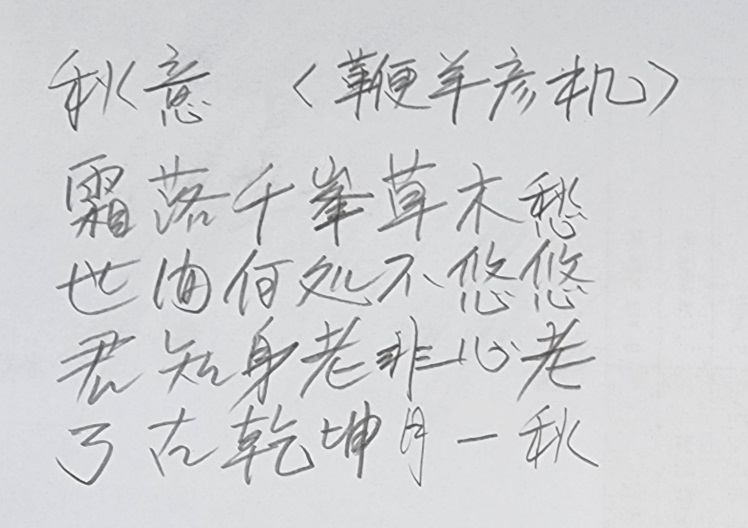 秋意 〈鞭羊彦机〉
霜落千峯草木愁
世间何处不悠悠
君知身老非心老
万古乾坤月一秋